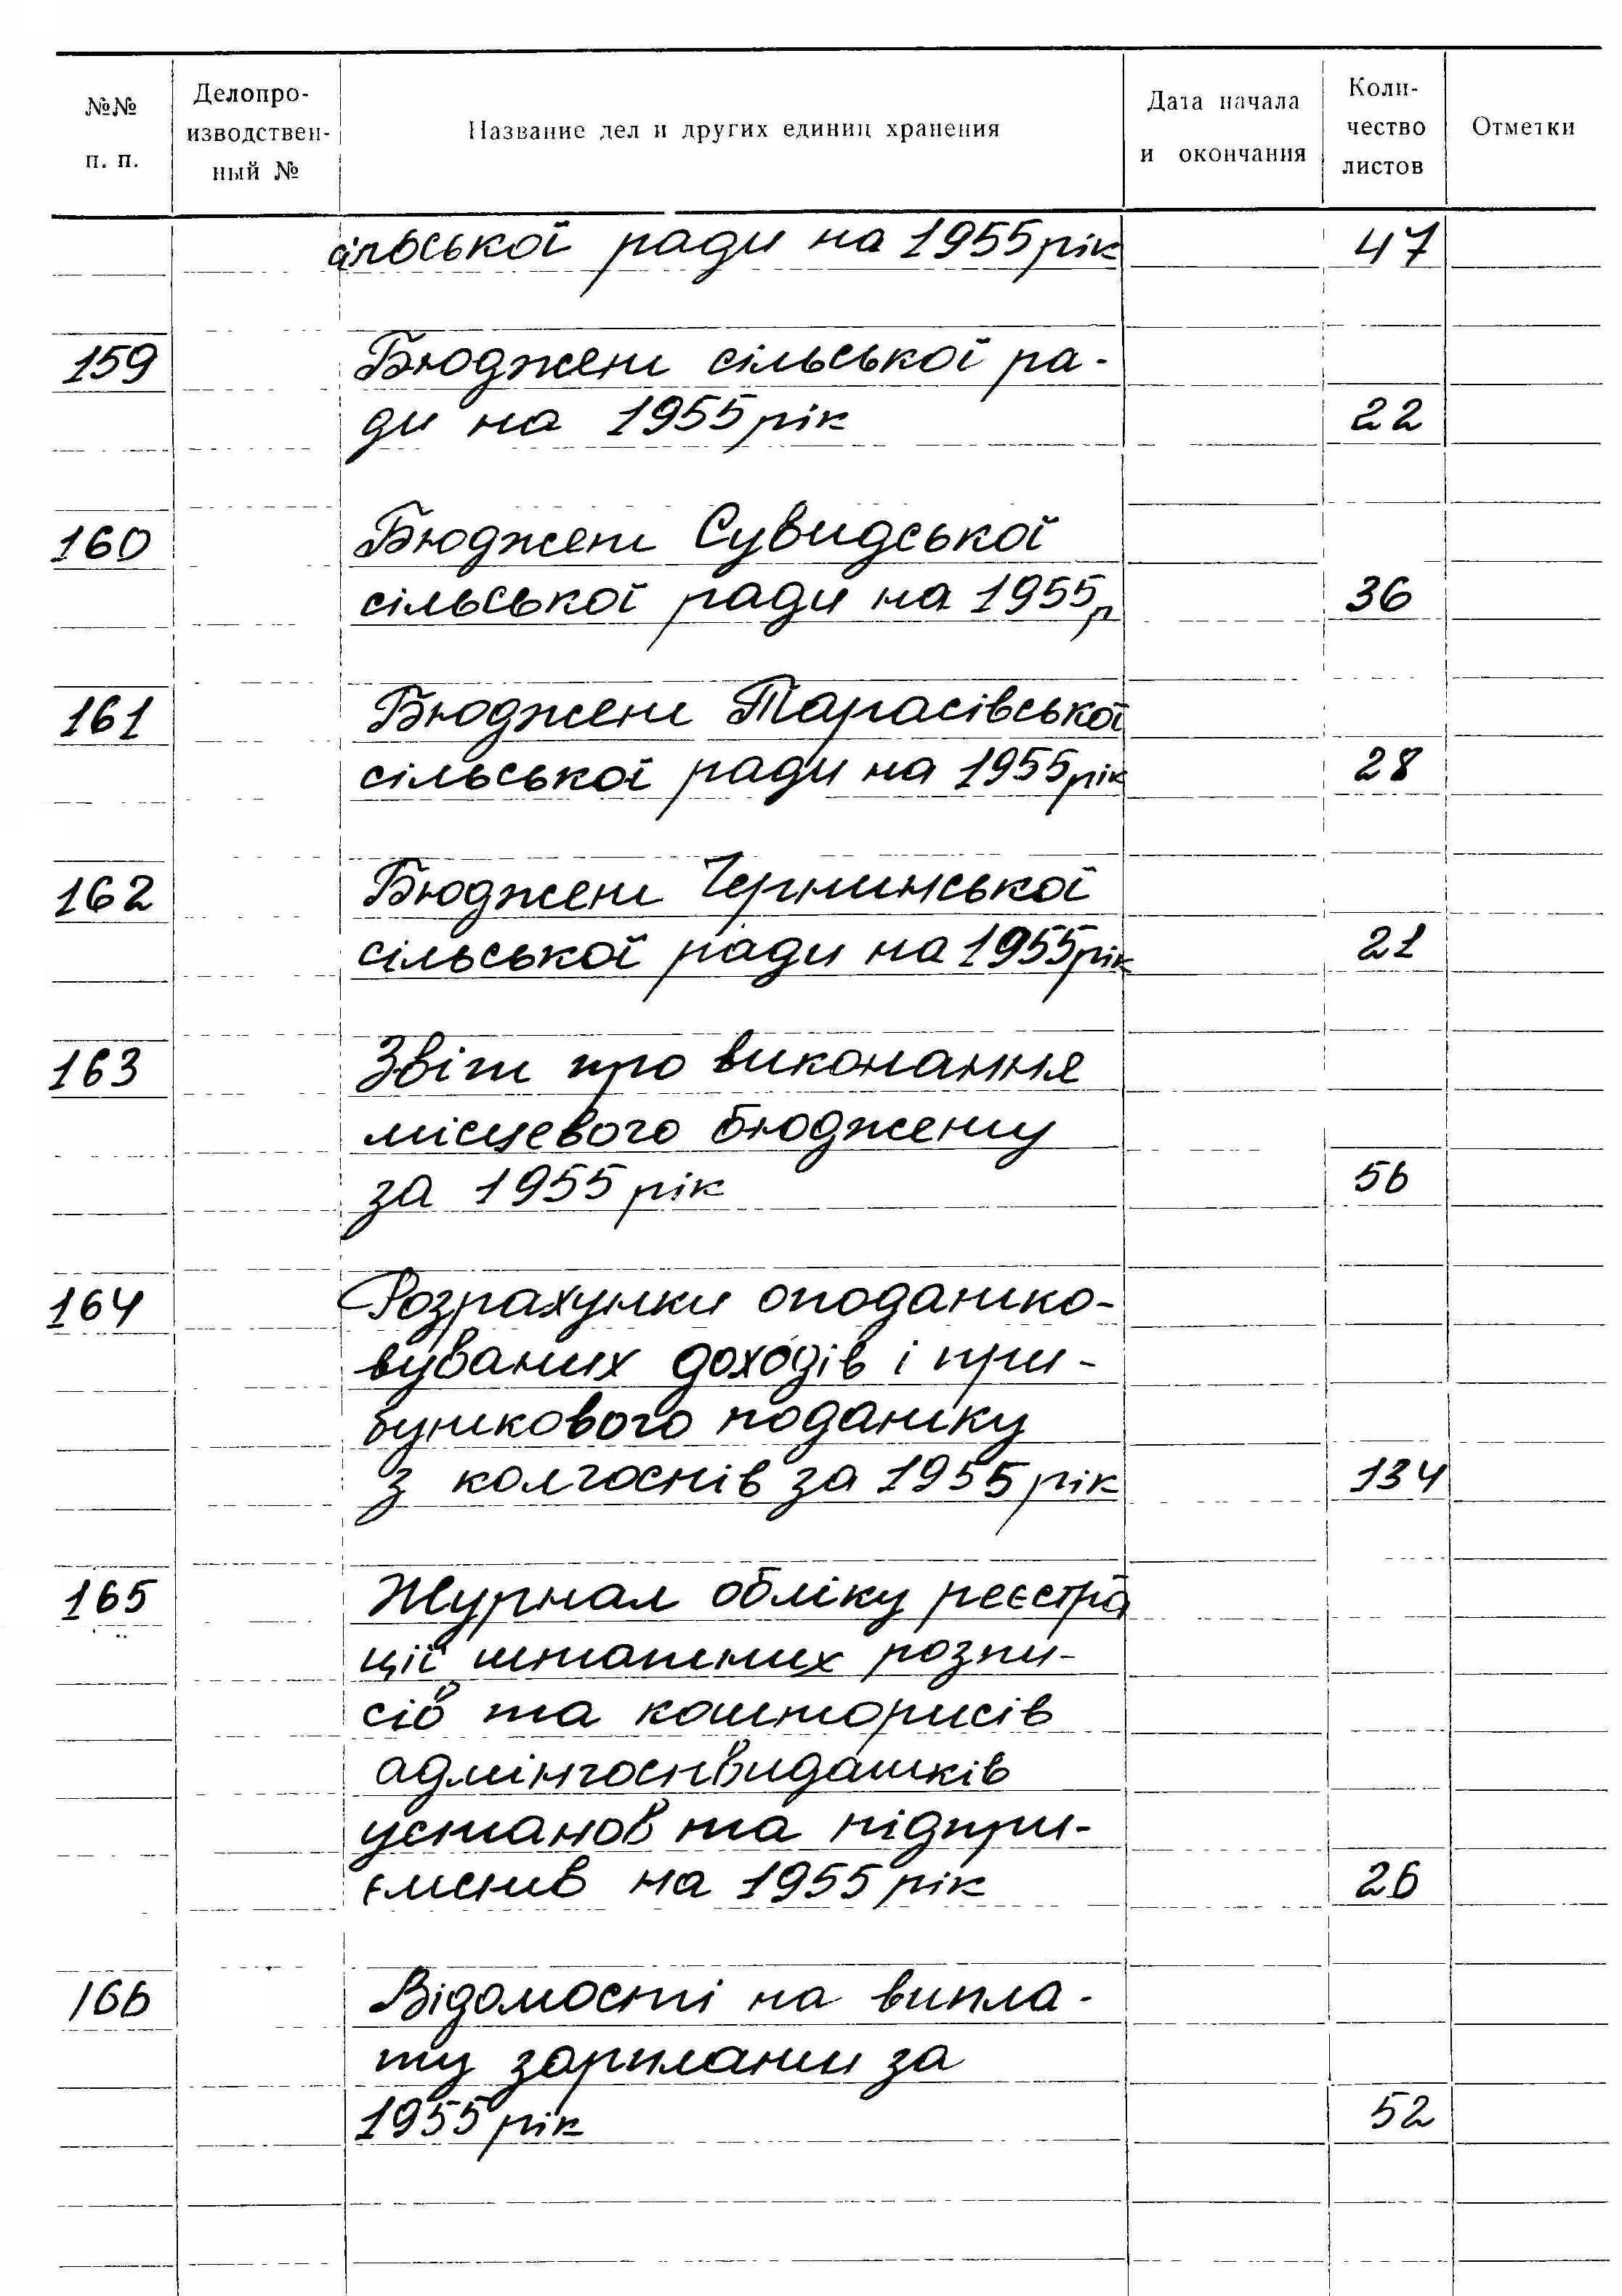 №№ п. п.
Делопро-
изводствен-
ный №
Название дел и других единиц хранения
Дата начала
и окончания
Коли-
чество
листов
Отметки
сільської ради на 1955 рік 47
159 Бюджет сільської ра-
ди на 1955 рік 22
160 Бюджет Сувидської
сільської ради на 1955 р 36
161 Бюджет Тарасівської
сільської ради на 1955 рік 28
162 Бюджет Чернинської
сільської ради на 1955 рік 21
163 Звіт про виконання
місцевого бюджету
за 1955 рік 56
164 Розрахунки оподатко-
вуваних доходів і при-
буткового податку
з колгоспів за 1955 рік 134
165 Журнал обліку реєстра
ції штатних розпи-
сів та кошторисів
адмінгоспвидатків
установ та підпри-
ємств на 1955 рік 26
166 Відомості на випла-
ту зарплати за
1955 рік 52